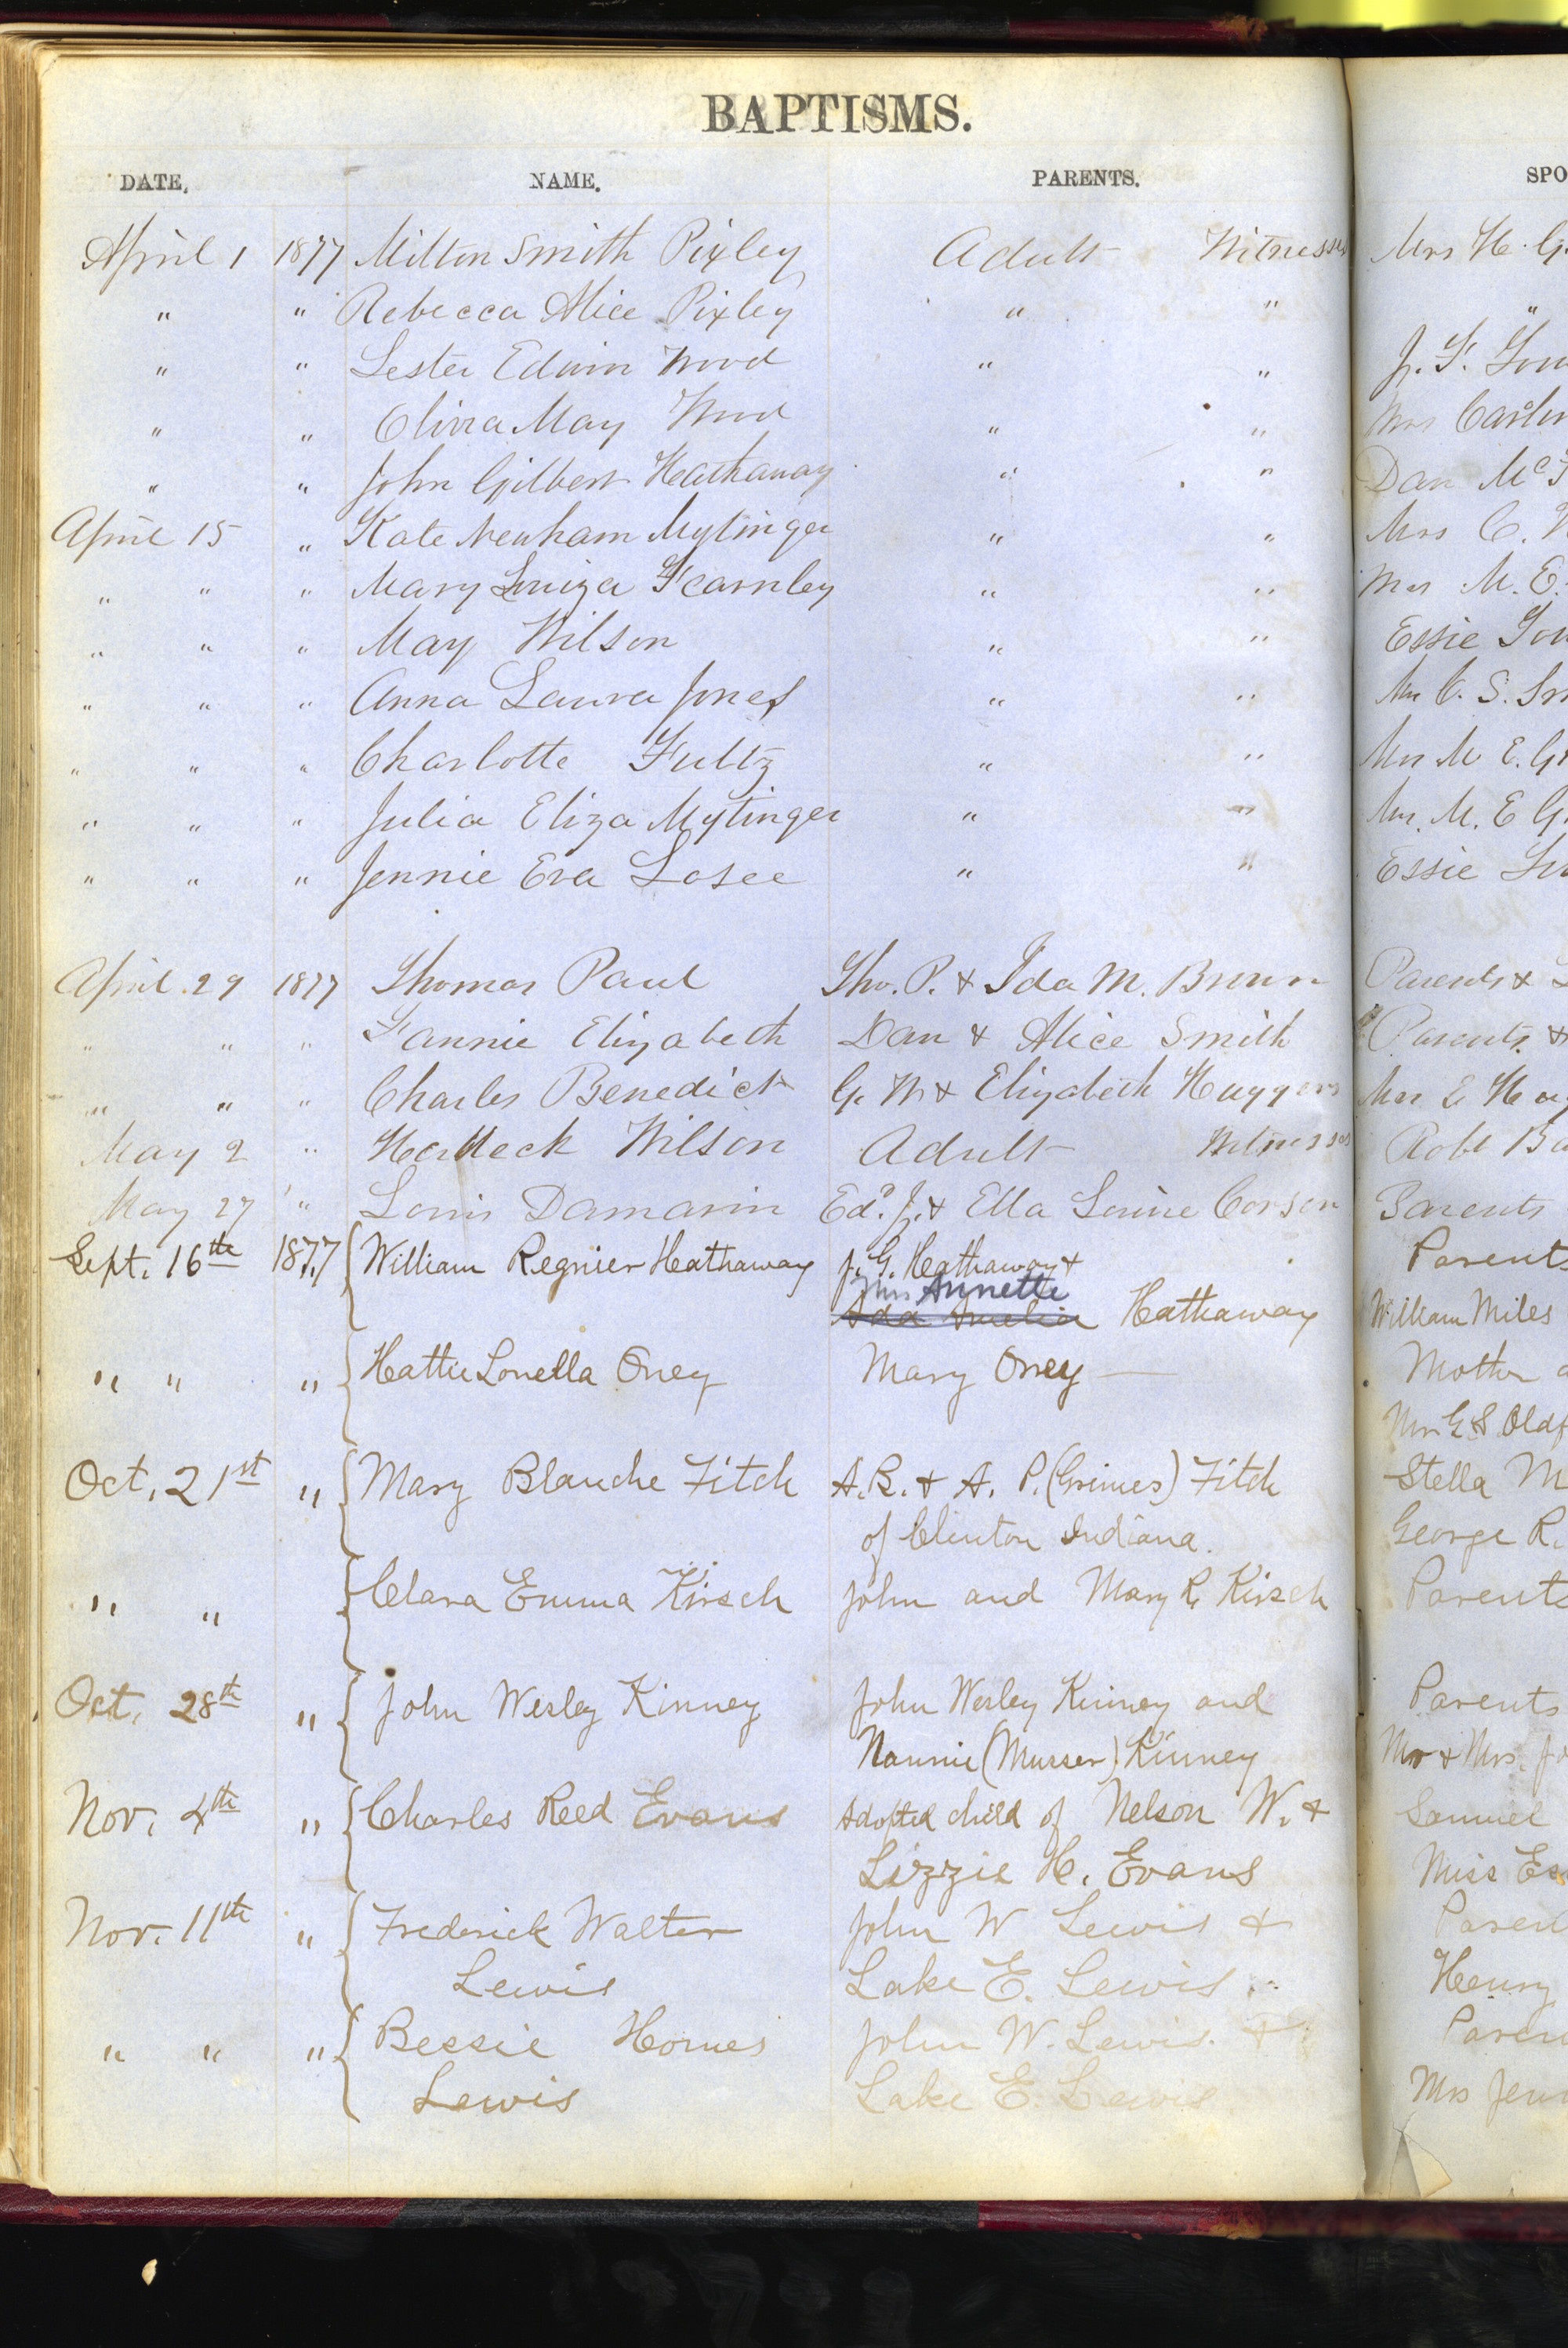 BAPTISMS.
DATE. NAME. PARENTS. SPO
April 1 1877 Milton Smith Pixley Adult Witnesses Mrs H. G.
" " Rebecca Alice Pixley " " "
" " Lester Edwin Wood " " J. F.
" " Olivia May Wood " " Mrs
" " John Gilbert Hathaway " " Dan McF
April 15 " Kate Newham Mytinger " " Mrs C.
" " " Mary Louiza Fearnley " " Mrs M. E.
" " " May Wilson " " Essie
" " " Anna Laura Jones " " C. S. Sm
" " " Charlotte Fultz " " Mrs M E. Gr
" " " Julia Eliza Mytinger " " Mrs. M. E Gr
" " " Jennie Eva Losee " " Essie
April 29 1877 Thomas Paul Tho. P. & Ida M. Brown Parents &
" " " Fannie Elizabeth Dan & Alice Smith Parents &
" " " Charles Benedict G. W & Elizabeth Huggens Mrs E Hug
May 2 " Wilson Adult Witnesses Robt Ba
May 27 " Louis Damarin Ed. J. & Ella Louise Corson Parents
Sept. 16th 1877 William Regnier Hathaway J. G. Hathaway & Parents
Mrs Annette
Ada Amelia Hathaway William Miles
" " " Hattie Lonella Oney Mary Oney — Mother a
Mrs G S Oldf
Oct. 21st " Mary Blanche Fitch A. B. & A. P. (Grimes) Fitch Stella M
of Clinton Indiana. George R.
" " Clara Emma Kirsch John and Mary R. Kirsch Parents
Oct. 28th " John Wesley Kinney John Wesley Kinney and Parents
Nannie (Musser) Kinney Mr & Mrs. Jo
Nov. 4th " Charles Reed Evans Adopted child of Nelson W. & Samuel
Lizzie H. Evans Miss Es
Nov. 11th " Frederick Walter John W Lewis & Paren
Lewis Lake E. Lewis Henry
" " " Bessie Homes John W. Lewis. & Paren
Lewis Lake E. Lewis Mrs Jenn